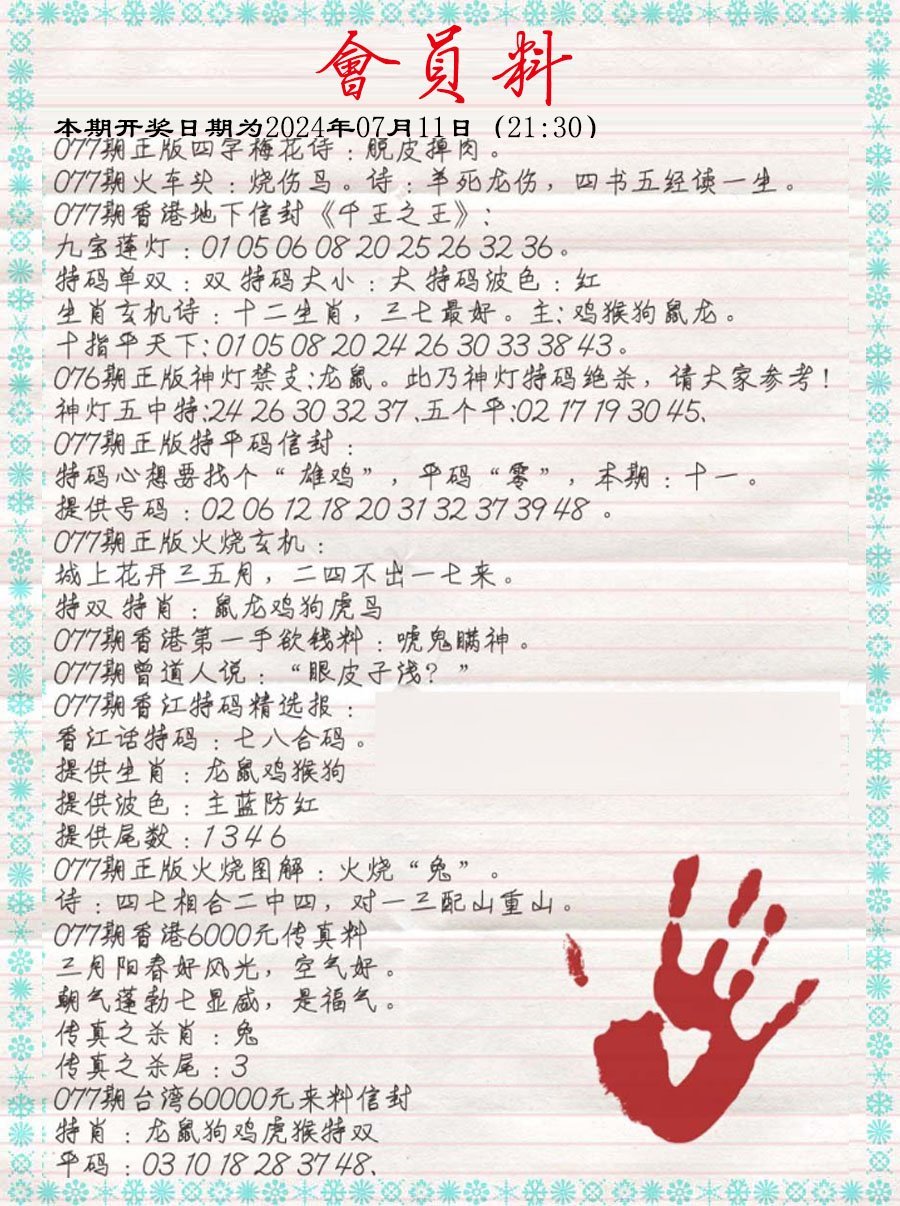 會員料
本期开奖日期为2024年07月11日（21:30）
077期正版四字梅花诗：脱皮掉肉。
077期火车头：烧伤鸟。诗：羊死龙伤，四书五经读一生。
077期香港地下信封《千王之王》:
九宝莲灯：01 05 06 08 20 25 26 32 36。
特码单双：双 特码大小：大 特码波色：红
生肖玄机诗：十二生肖，三七最好。主:鸡猴狗鼠龙。
十指平天下:01 05 08 20 24 26 30 33 38 43。
076期正版神灯禁支:龙鼠。此乃神灯特码绝杀，请大家参考！
神灯五中特:24 26 30 32 37 .五个平:02 17 19 30 45.
077期正版特平码信封：
特码心想要找个“雄鸡”，平码“零”，本期：十一。
提供号码：02 06 12 18 20 31 32 37 39 48 。
077期正版火烧玄机：
城上花开三五月，二四不出一七来。
特双 特肖：鼠龙鸡狗虎马
077期香港第一手欲钱料：唬鬼瞒神。
077期曾道人说：“眼皮子浅？”
077期香江特码精选报：
香江话特码：七八合码。
提供生肖：龙鼠鸡猴狗
提供波色：主蓝防红
提供尾数：1 3 4 6
077期正版火烧图解：火烧“兔”。
诗：四七相合二中四，对一三配山重山。
077期香港6000元传真料
三月阳春好风光，空气好。
朝气蓬勃七显威，是福气。
传真之杀肖：兔
传真之杀尾：3
077期台湾60000元来料信封
特肖：龙鼠狗鸡虎猴特双
平码：03 10 18 28 37 48.